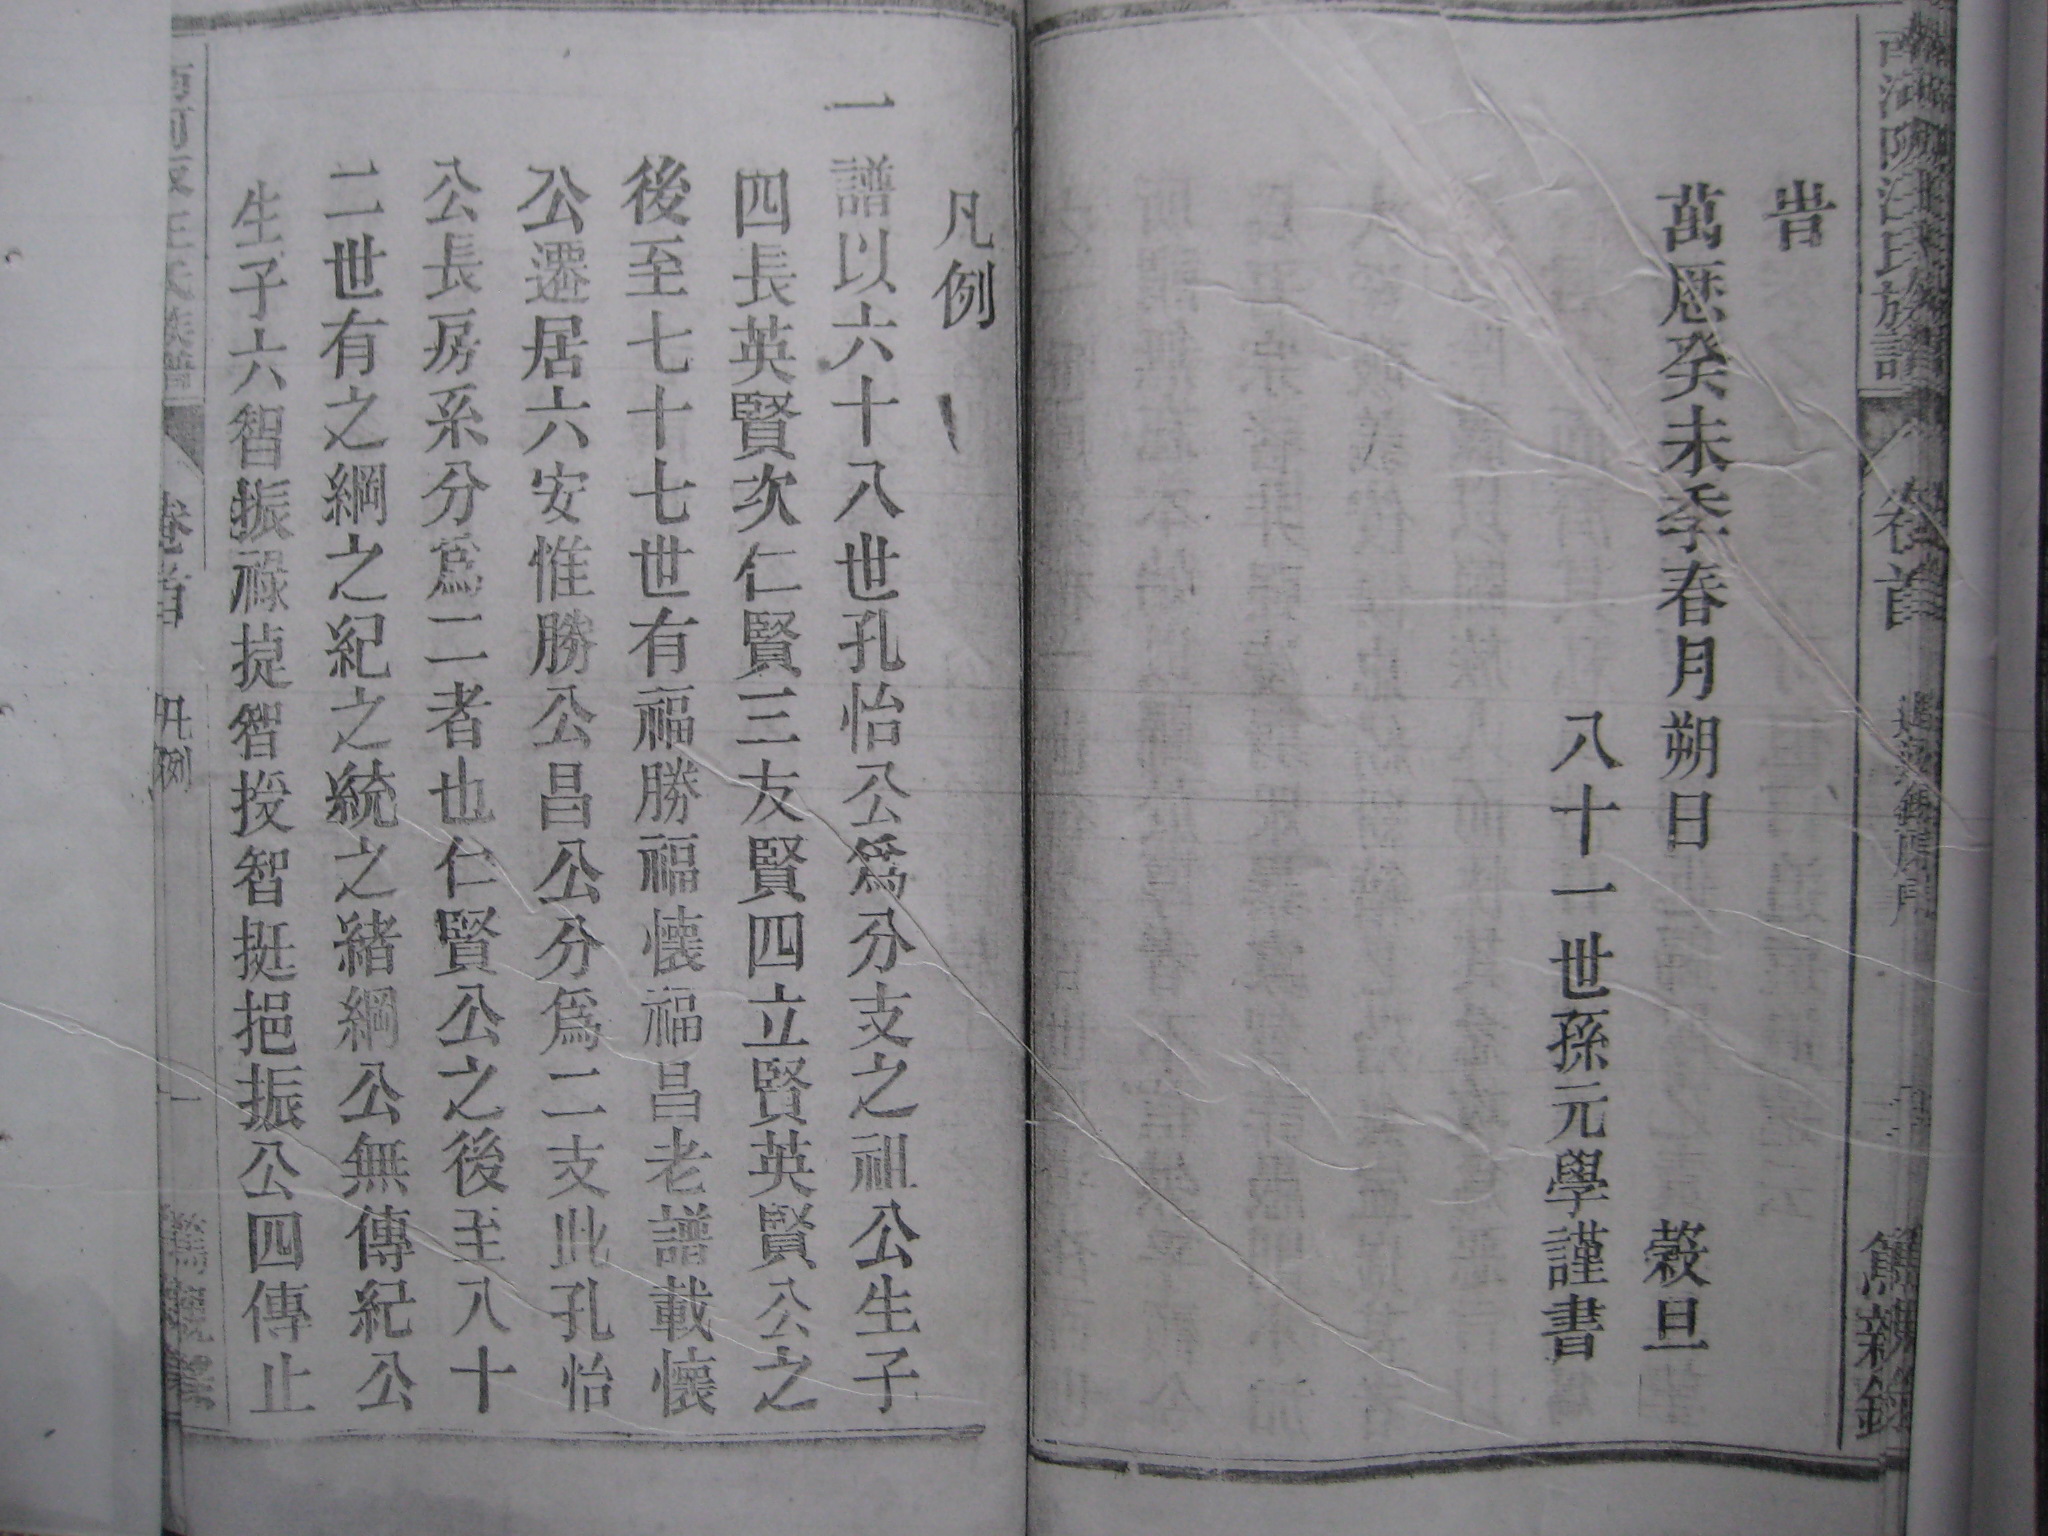 旹
萬厯癸未季春月朔日 穀旦
八十一世孫元學謹書
凡例
一譜以六十八世孔怡公爲分支之祖公生子
四長英賢次仁賢三友賢四立賢英賢公之
後至七十七世有福勝福懷福昌老譜載懷
公遷居六安惟勝公昌公分爲二支此孔怡
公長房系分爲二者也仁賢公之後至八十
二世有之綱之紀之統之緒綱公無傳紀公
生子六智振祿揁智授智挺挹振公四傳止
卷首
凡例
一